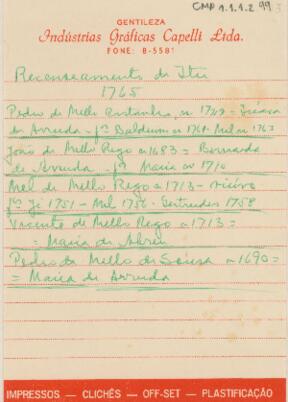 CMP 1.1.1.2 99
GENTILEZA
Indústrias Gráficas Capelli Ltda.
FONE: 8-5581
Recenseamento de Itu
1765
Pedro de Mello n. 1719 =
de Arruda - fº n 1761 - Mel n 1763
João de Mello Rego n 1683 = Bernarda
de Arruda - fª Maria n 1710
Mel de Mello Rego n 1713 - viúvo
fºs Jº 1751 - Mel 1756 - Gertrudes 1758
Vicente de Mello Rego n 1713 =
= Maria de Abreu
Pedro de Mello de Sousa n 1690 =
= Maria de Arruda
IMPRESSOS — CLICHÊS — OFF-SET — PLASTIFICAÇÃO